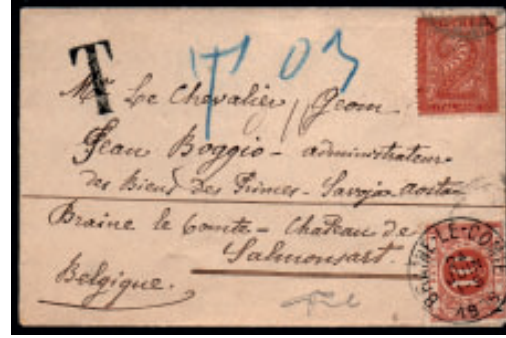 T
T 03
Mr Le Chevalier Geom.
Jean Boggio - administrateur
des Biens des Princes - Savoja aosta
Braine le Comte - Chateau de
Salmonsart.
Belgique.
BRAINE-LE-COMTE
10